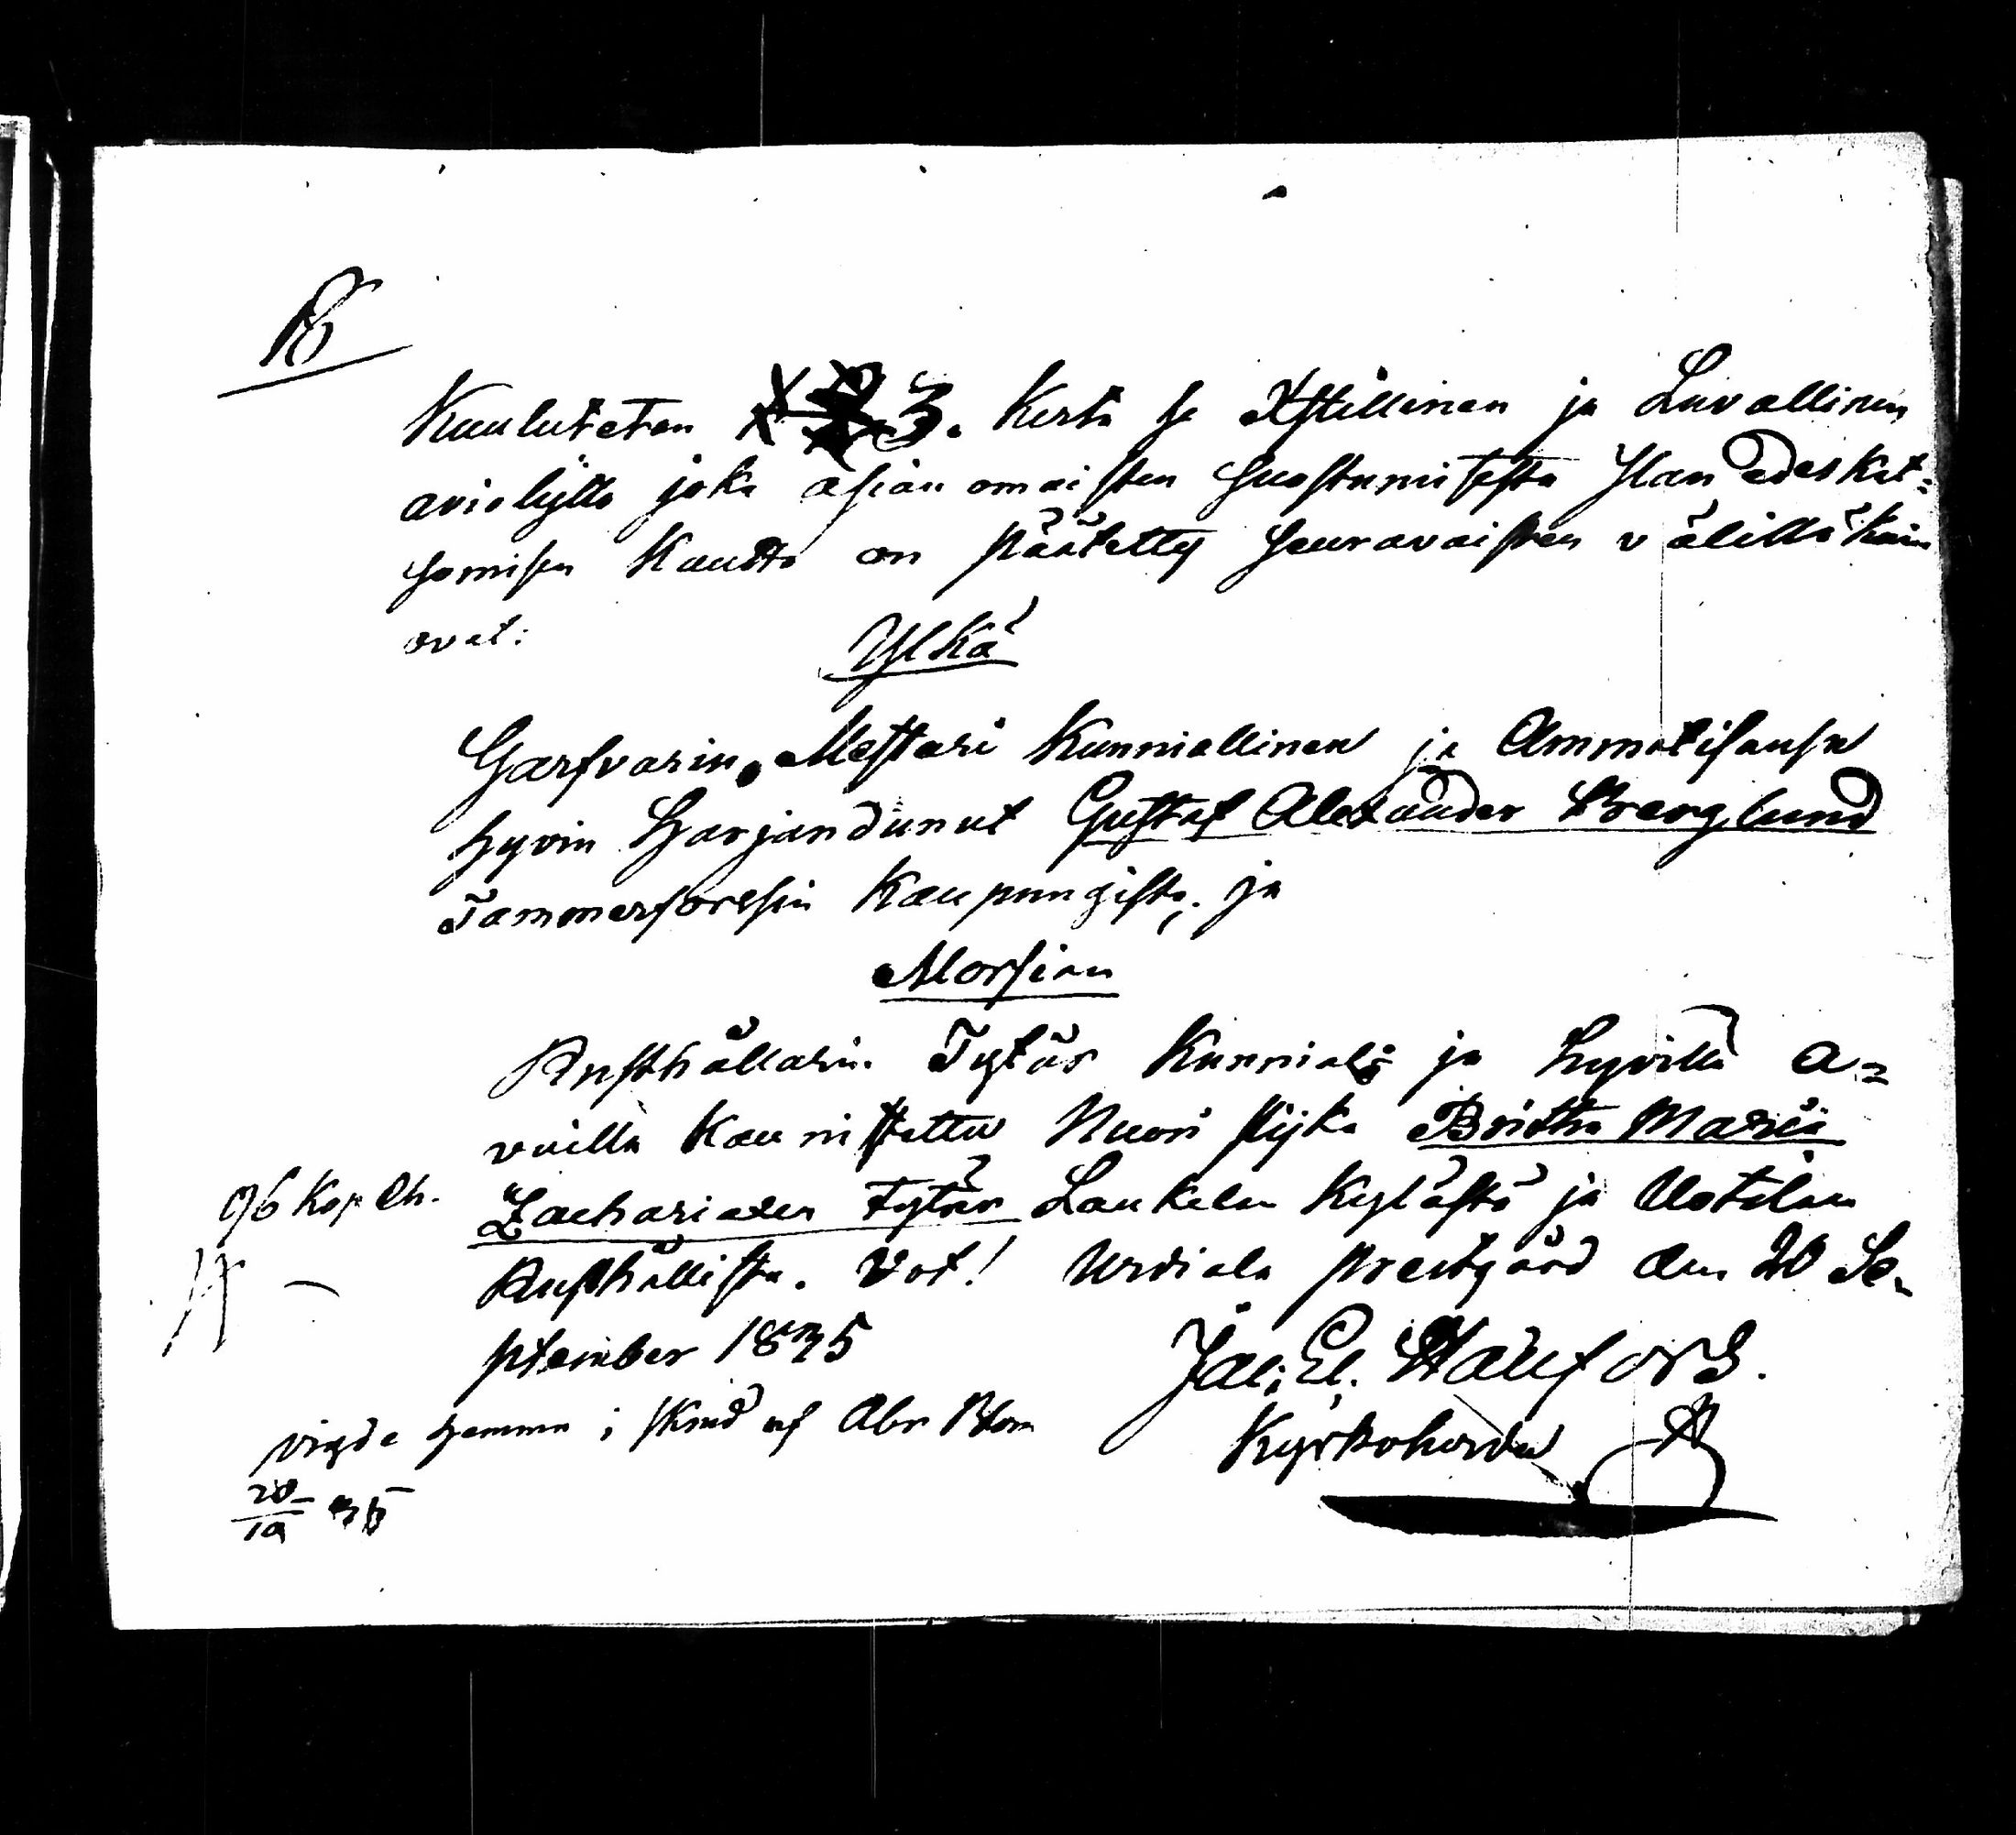 18
Kuulutetan 3. Kerta se Xstillinen ja Luvallinen
avioliitto joka asian omaisten suostumisesta Ylan edeskat=
somisen Kautta on päätetty seuravaisten välillä kuin
ovat:
Ylkä
Garfvarin Mestari Kunniallinen ja Ammatisansa
hyvin Harjandunut Gustaf Alexander Berglund
Tammerforssin Kaupungista; ja
Morsian
Rusthållarin Tytär Kunniali: ja hyvillä a=
vuilla Kaunistettu Nuori pijka Britha Maria
Zachariaxen tytär Laukelan Kylästä ja Uotilan
96 Kop Ch.
Rusthållista. Vot! Urdiala prestgård den 20 Se-
ptember 1835
Kyrkoherde
vigde hemma i af Abr Blom
20/10 35